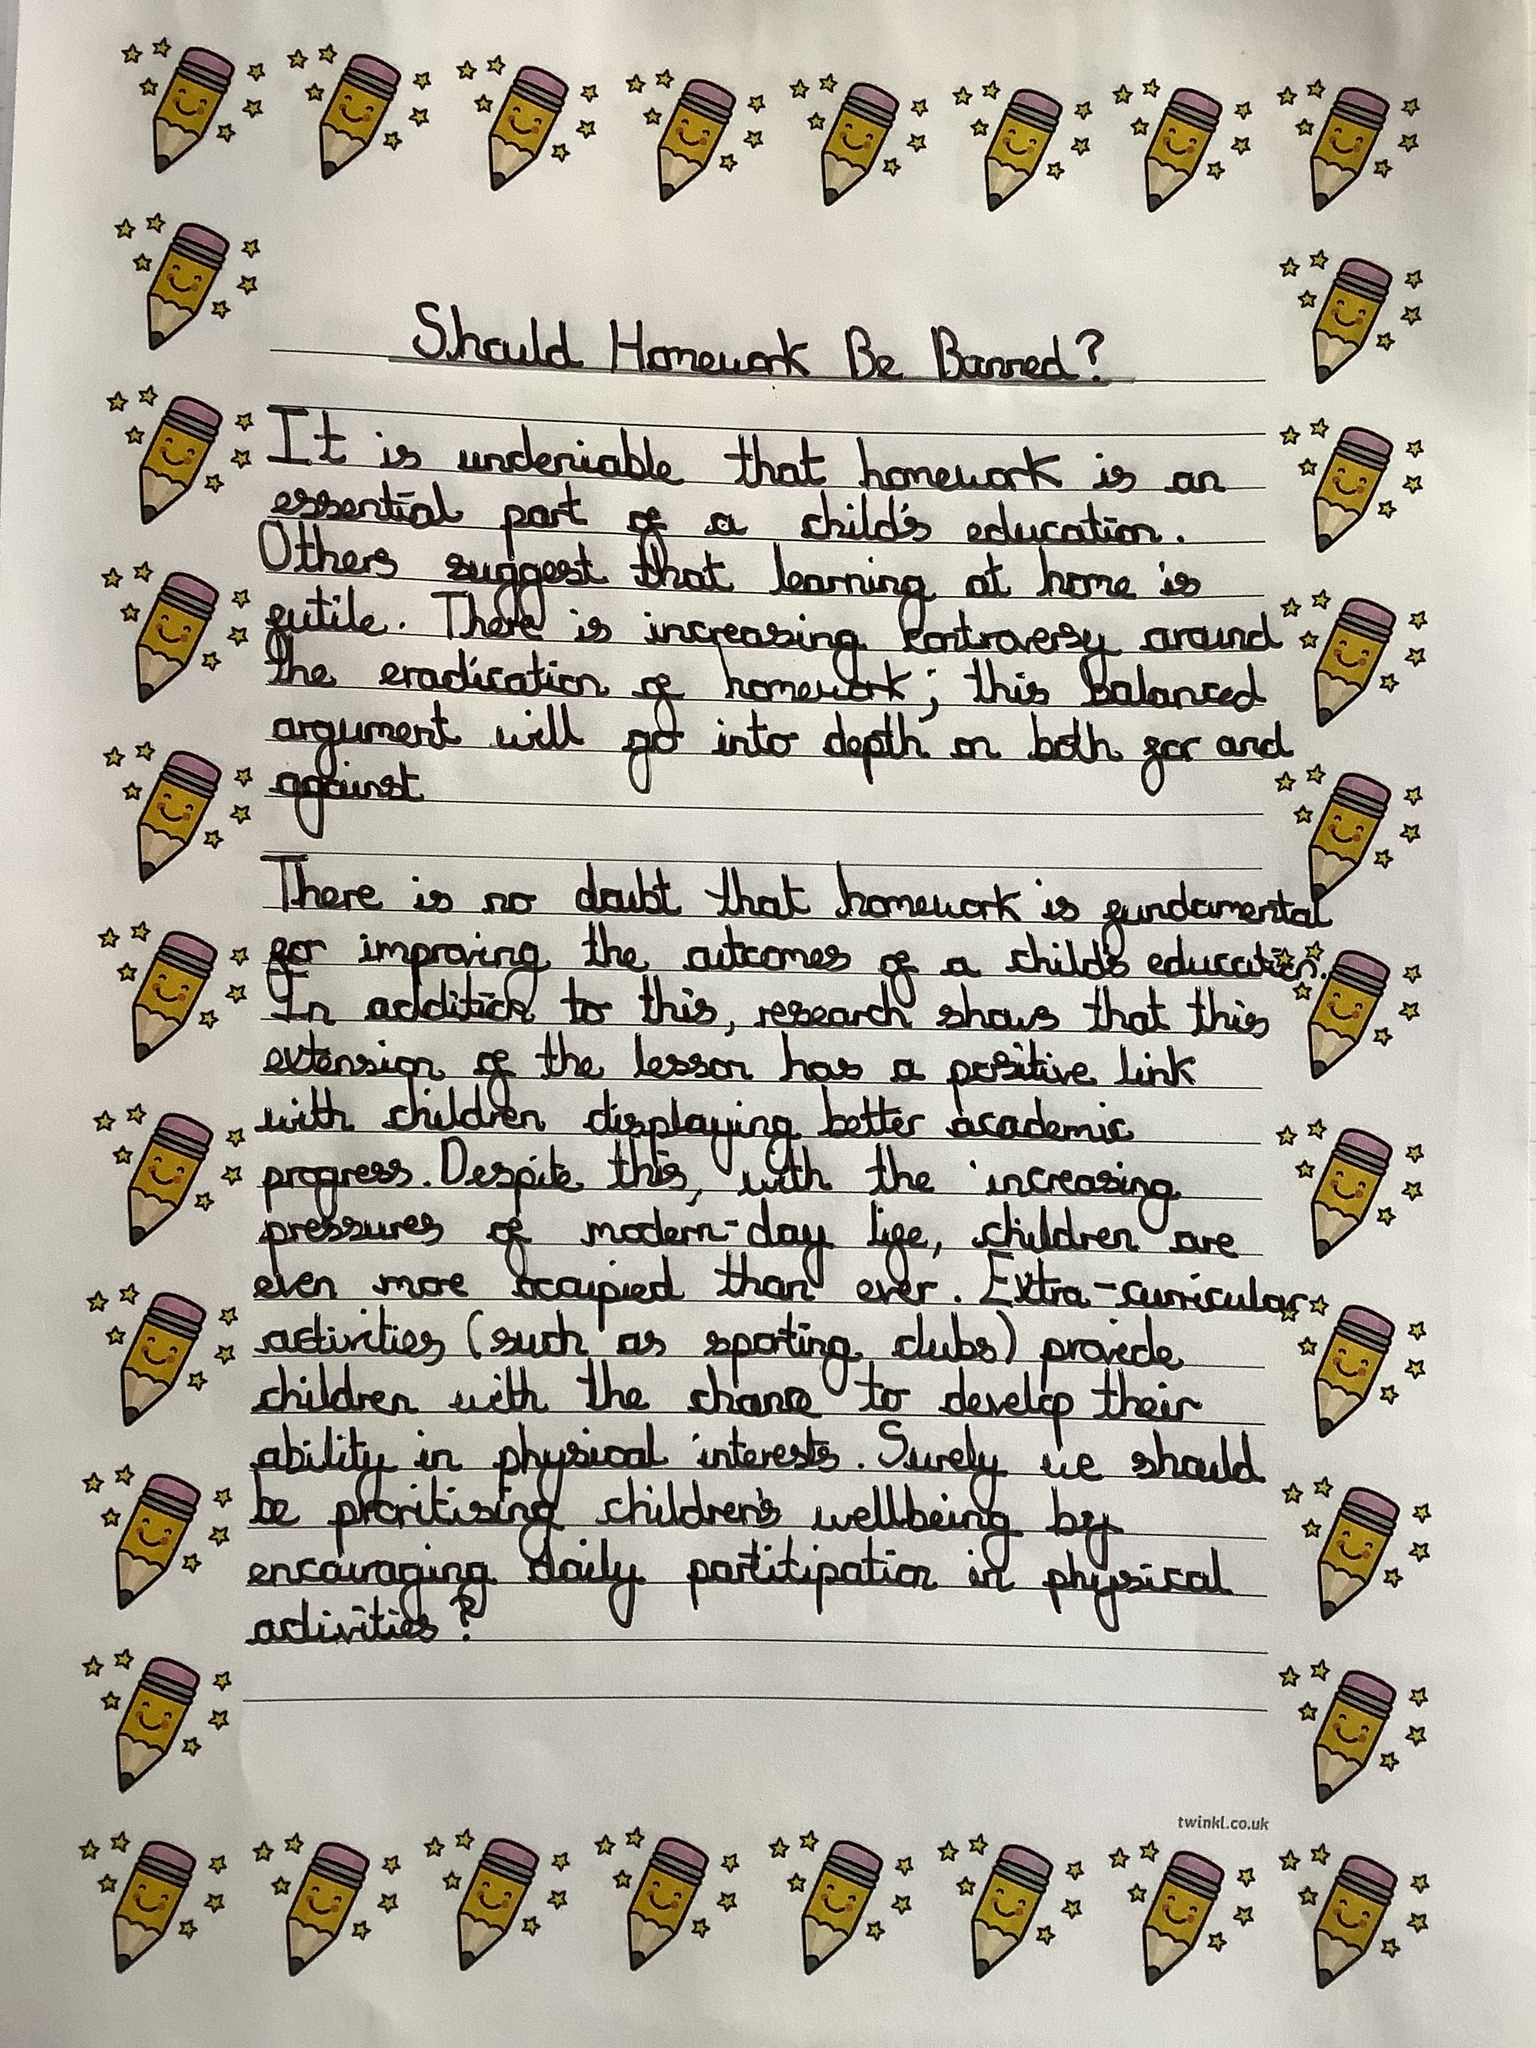 Should Homework Be Banned?
It is undeniable that homework is an
essential part of a child's education.
Others suggest that learning at home is
futile. There is increasing controversy around
the eradication of homework; this balanced
argument will go into depth on both for and
against
There is no doubt that homework is fundamental
for improving the outcomes of a child's education.
In addition to this, research shows that this
extension of the lesson has a positive link
with children displaying better academic
progress. Despite this, with the increasing
pressures of modern-day life, children are
even more occupied than ever. Extra-curricular
activities (such as sporting clubs) provide
children with the chance to develop their
ability in physical interests. Surely we should
be prioritising children's wellbeing by
encouraging daily partitipation in physical
activities?
twinkl.co.uk